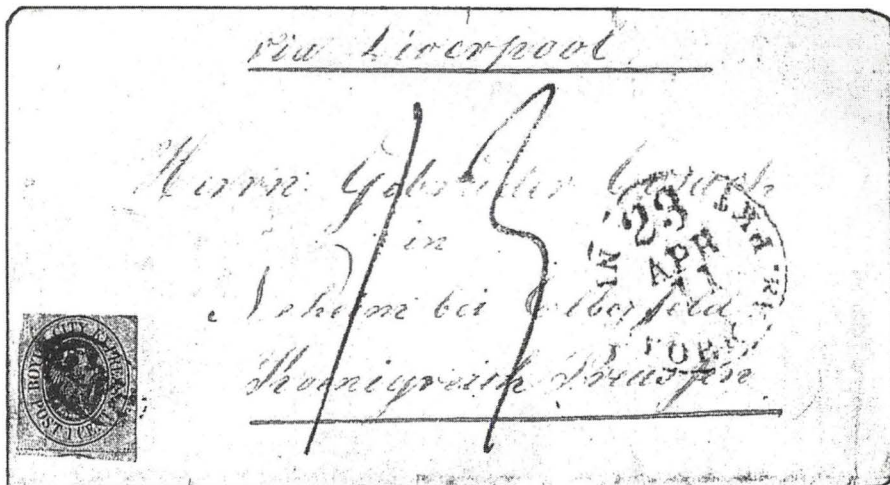 via Liverpool
Herrn Gebrüder
in
bei Elberfeld
Koenigreich Preussen
13
N. YORK BR. PKT
23
APR
11
BOYD'S CITY EXPRESS
POST 1 CENT